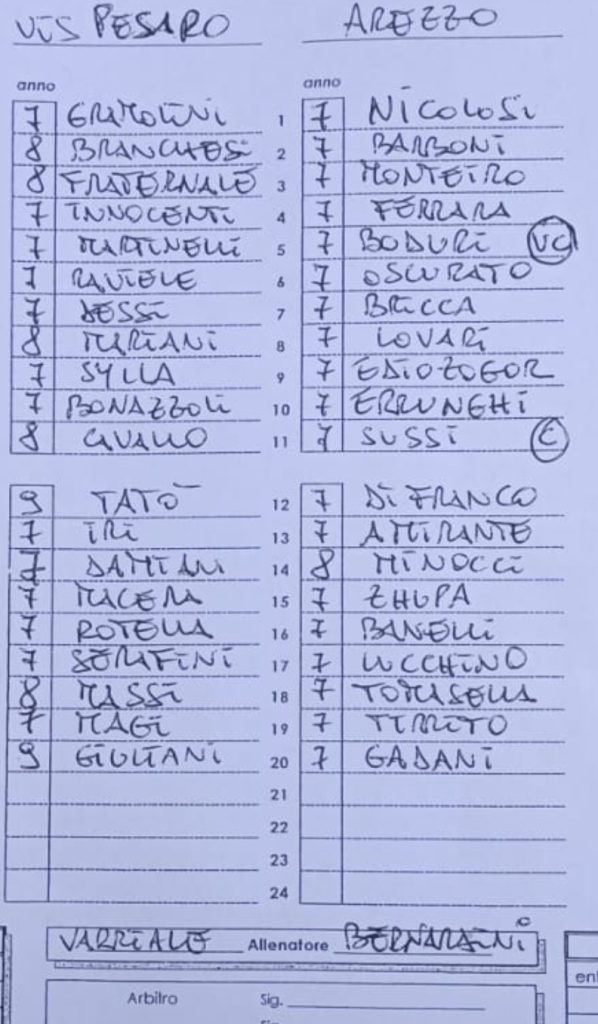 VIS PESARO AREZZO
anno anno
7 GRAMOLINI 1 7 NICOLOSI
8 BRANCHESI 2 7 BARBONI
8 FRATERNALE 3 7 MONTEIRO
7 INNOCENTI 4 7 FERRARA
7 MARTINELLI 5 7 BODURI VC
7 RAVIELE 6 7 OSCURATO
7 DESSI 7 7 BRICCA
8 MARIANI 8 7 LOVARI
7 SYLLA 9 7
7 BONAZZOLI 10 7 ERRUNGHI
8 CAVALLO 11 7 SUSSI C
9 TATÒ 12 7 DI FRANCO
7 IRI 13 7 AMIRANTE
7 DAMIANI 14 8 MINOCCI
7 MACERA 15 7 ZHUPA
7 ROTELLA 16 7 BANELLI
7 SERAFINI 17 7 LUCCHINO
8 MASSI 18 7 TOMASELLA
7 MAGI 19 7 TERRITO
9 GIULIANI 20 7 GADANI
21
22
23
24
VARRIALE Allenatore BERNARDINI
Arbitro Sig.